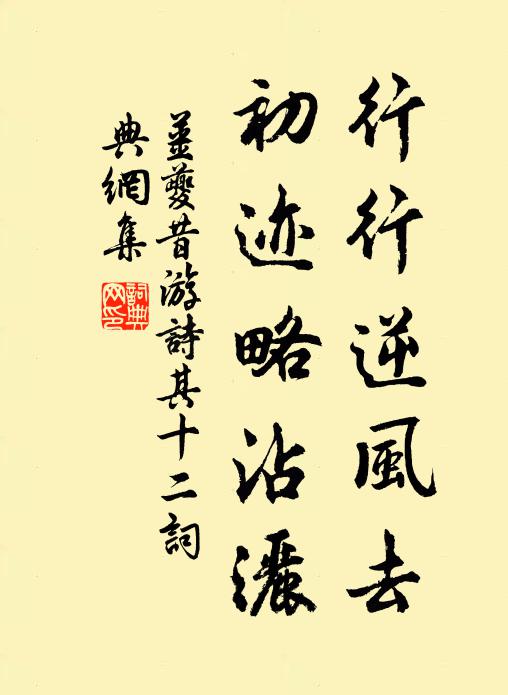 行行逆風去
初迹略沾灑
姜夔昔游詩其十二詞
典網集
詞典
网印